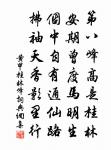 第八峰高是桂林
安期曾度馬生
步中自有通仙路
拂袖天香彩星行
黄甲桂林峰 詞典網書